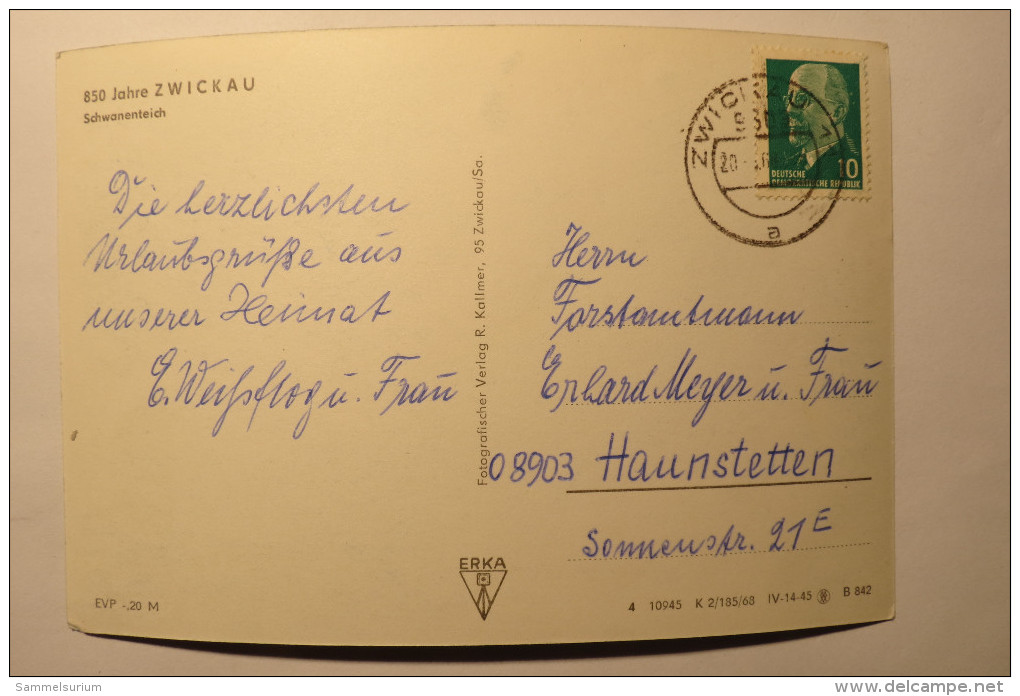 850 Jahre ZWICKAU
Schwanenteich
Die herzlichsten
Urlaubsgrüße aus
unserer Heimat
E. Weißflog u. Frau
EVP -,20 M
Fotografischer Verlag R. Kallmer, 95 Zwickau/Sa.
ERKA
ZWICKAU 1
a
10
DEUTSCHE
DEMOKRATISCHE REPUBLIK
Herrn
Forstamtmann
Erhard Meyer u. Frau
08903 Haunstetten
Sonnenstr. 21E
4 10945 K 2/185/68 IV-14-45 B 842
Sammelsurium
www.delcampe.net